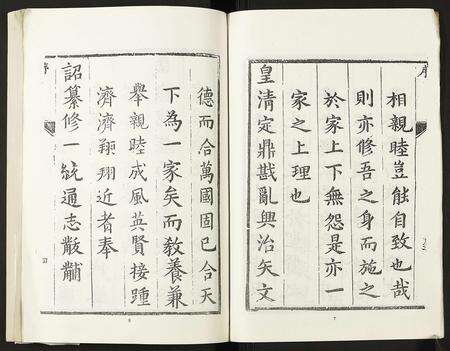 序
相親睦豈能自致也哉
則亦修吾之身而施之
於家上下無怨是亦一
家之上理也
皇清定鼎戡亂興治矢文
7
德而合萬國固已合天
下為一家矣而教養兼
舉親睦成風英賢接踵
濟濟翔翔近者奉
詔纂修一統通志黻黼
序
四
6